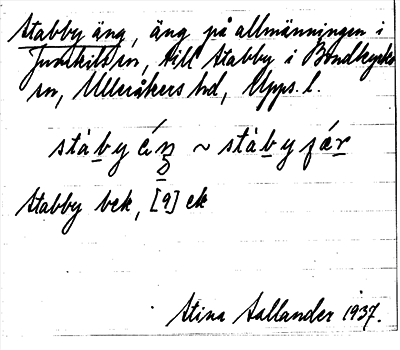 Stabby äng, äng på allmänningen i
Jumkils sn, till Stabby i Bondkyrko
sn, Ulleråkers hd, Upps. l.
stàby ǽŋ ~ stàby
Stabby bek, [9] ek
Stina Sallander 1937.